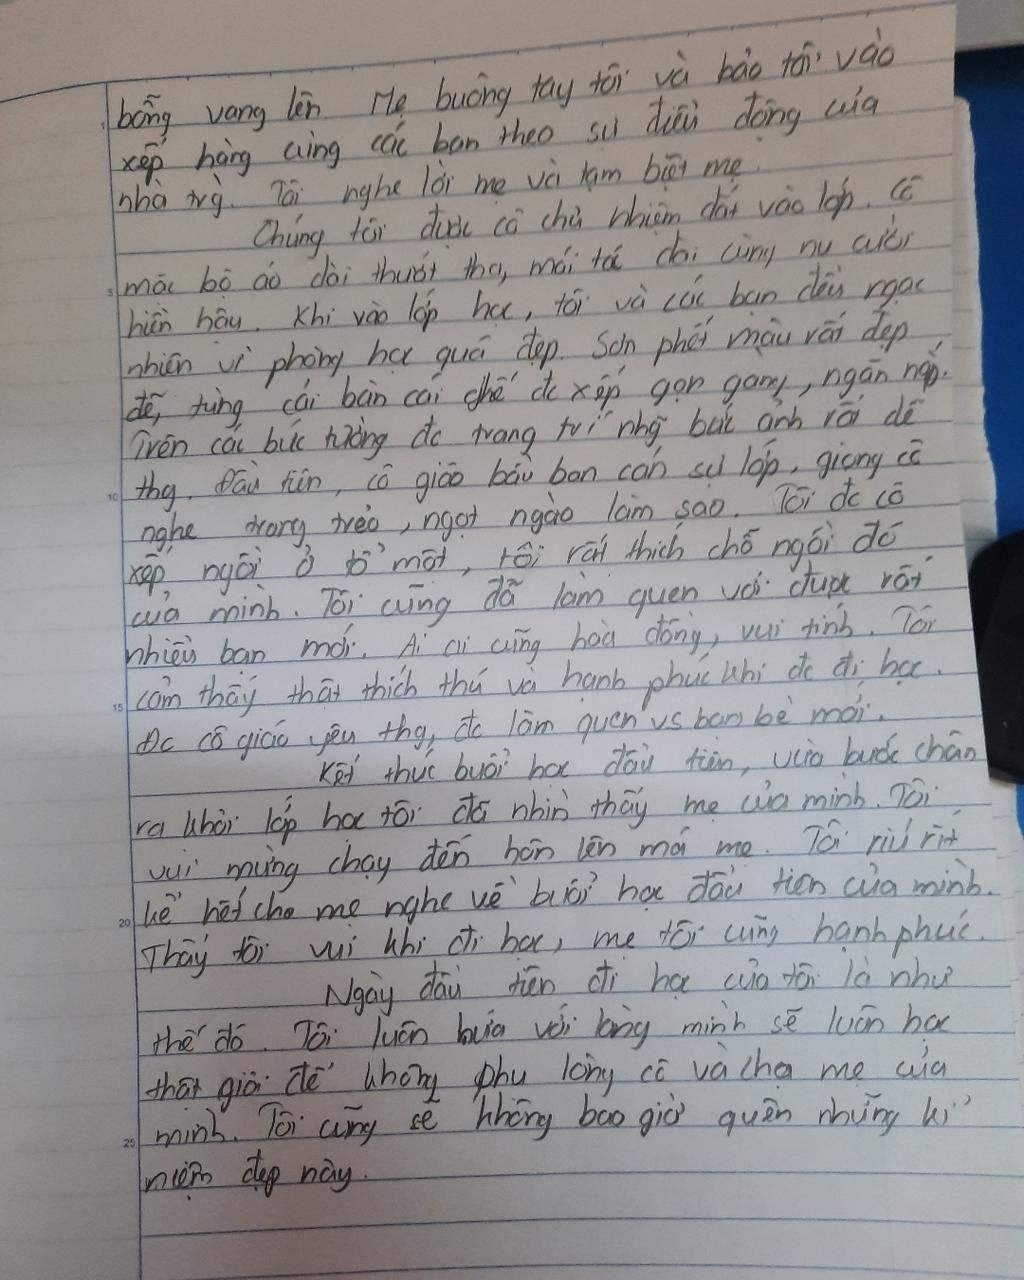 bỗng vang lên Mẹ buông tay tôi và bảo tôi vào
xếp hàng cùng các bạn theo sự điều động của
nhà trg. Tôi nghe lời mẹ và tạm biệt mẹ.
Chúng tôi được cô chủ nhiệm dắt vào lớp. Cô
mặc bộ áo dài thướt tha, mái tóc dài cùng nụ cười
hiền hậu. Khi vào lớp học, tôi và các bạn đều ngạc
nhiên vì phòng học quá đẹp. Sơn phết màu rất đẹp
đẽ, từng cái bàn cái ghế đc xếp gọn gàng, ngăn nắp.
Trên các bức tường đc trang trí nhg bức ảnh rất dễ
thg. Đầu tiên, cô giáo bầu ban cán sự lớp, giọng cô
nghe trong trẻo, ngọt ngào làm sao. Tôi đc cô
xếp ngồi ở tổ một, tôi rất thích chỗ ngồi đó
của mình. Tôi cũng đã làm quen với được rất
nhiều bạn mới. Ai ai cũng hoà đồng, vui tính. Tôi
cảm thấy thật thích thú và hạnh phúc khi đc đi học.
Đc cô giáo yêu thg, đc làm quen vs bạn bè mới.
Kết thúc buổi học đầu tiên, vừa bước chân
ra khỏi lớp học tôi đã nhìn thấy mẹ của mình. Tôi
vui mừng chạy đến hôn lên má mẹ. Tôi ríu rít
kể hết cho mẹ nghe về buổi học đầu tiên của mình.
Thấy tôi vui khi đi học, mẹ tôi cũng hạnh phúc.
Ngày đầu tiên đi học của tôi là như
thế đó. Tôi luôn hứa với lòng mình sẽ luôn học
thật giỏi để không phụ lòng cô và cha mẹ của
mình. Tôi cũng sẽ không bao giờ quên những kỉ
niệm đẹp này.